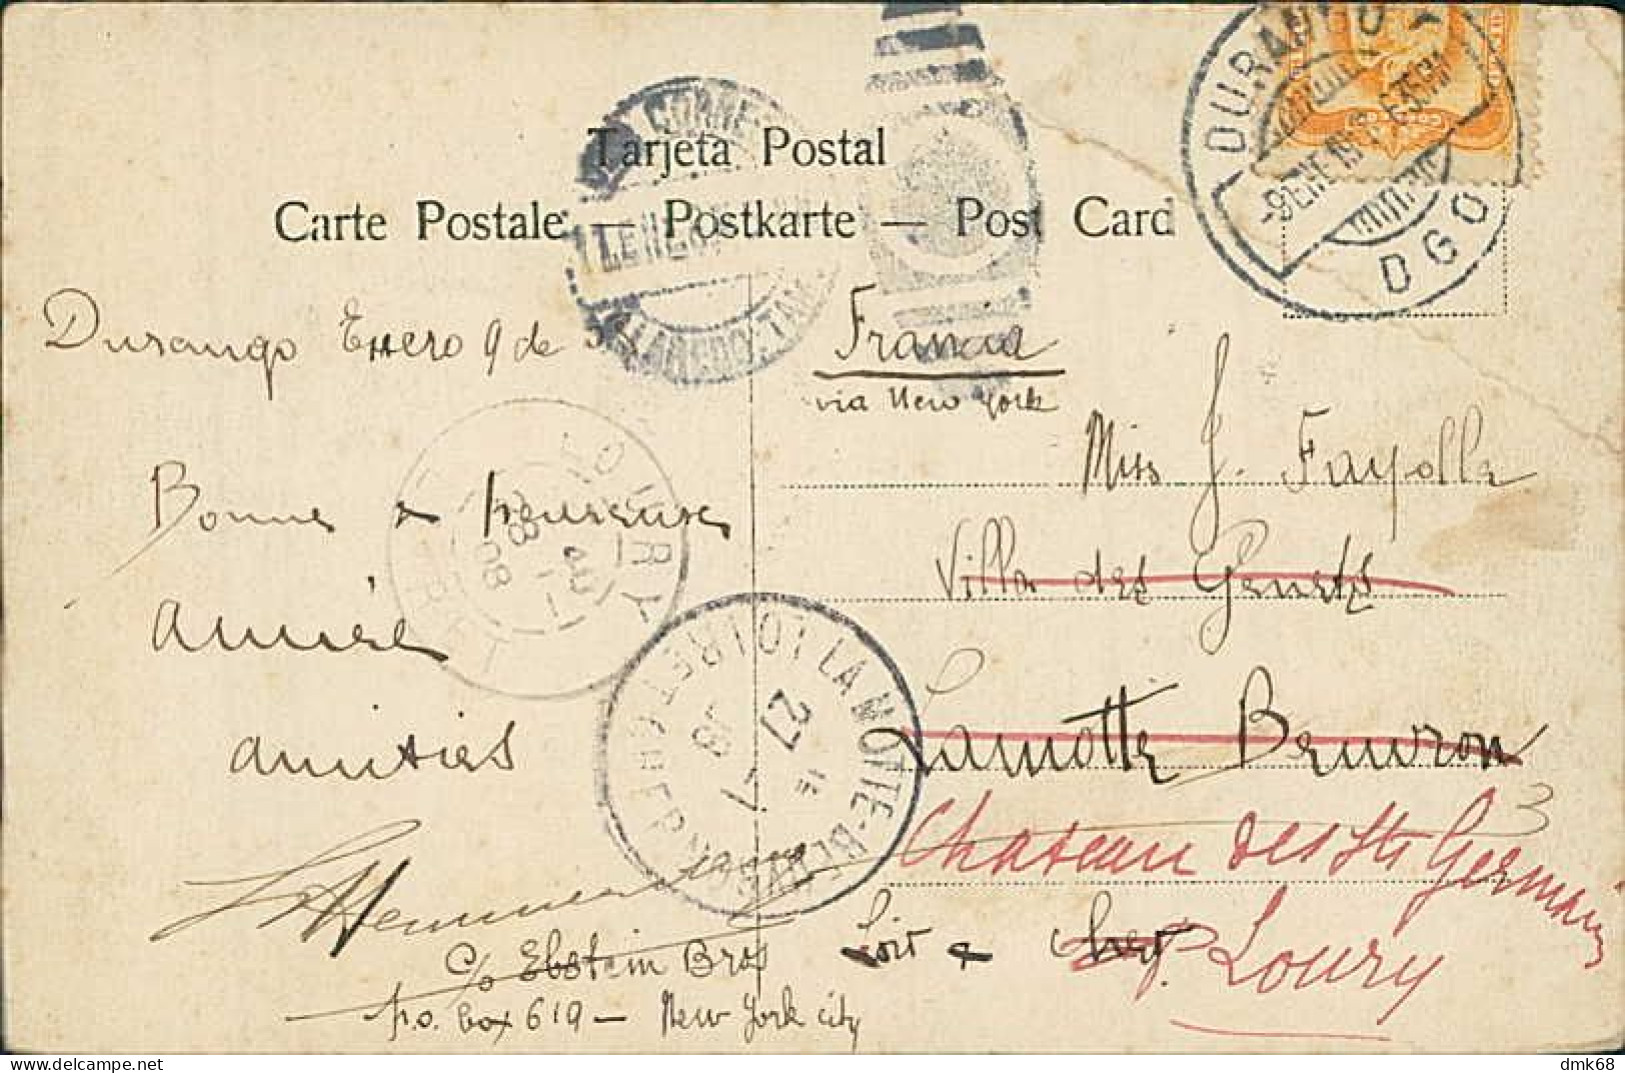 Tarjeta Postal
Carte Postale — Postkarte — Post Card
DURANGO
DGO
Durango Enero 9 de
Francia
via New York
Miss J. Fayolle
Bonne & heureuse
Villa des Genets
année
Lamotte Beuvron
amitiés
Chateau des
Germain
Loir & Cher
p. Loury
c/o Ebstein Bros
p.o. box 619 — New York city
LA MOTTE-BEUVRON
LOIR ET CHER
27
LOURY
LOIRET
08
dmk68